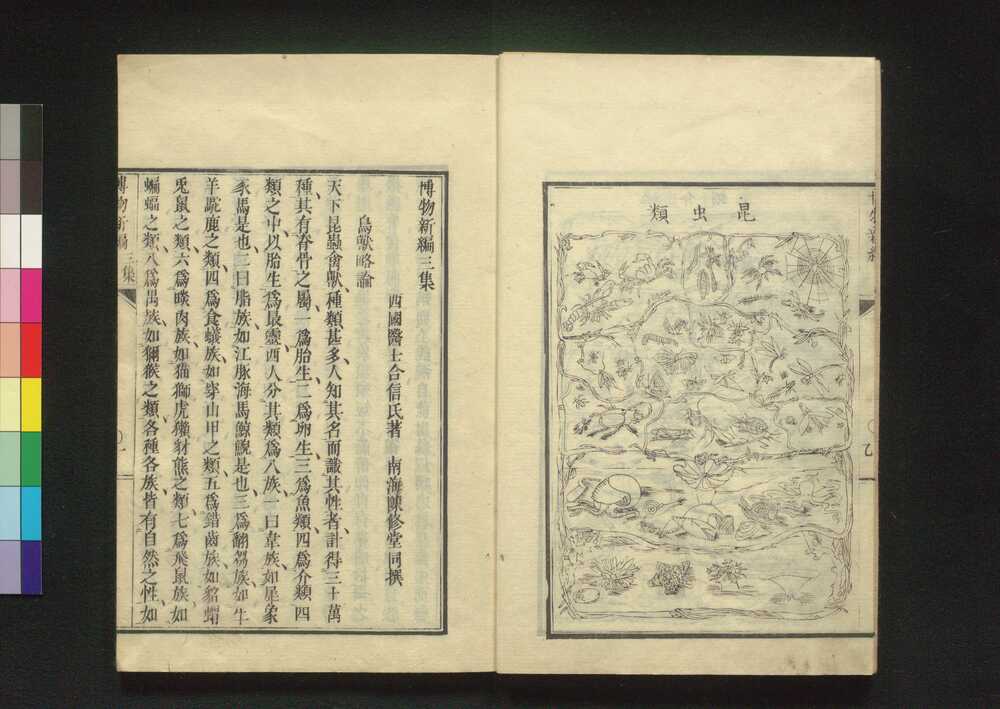 昆虫類
博物新編三集
鳥獸略論
西國醫士合信氏著 南海陳修堂同撰
天下昆蟲禽獸種類甚多人知其名而識其性者計得三十萬
種其有脊骨之屬一爲胎生二爲卵生三爲魚類四爲介類四
類之中以胎生爲最靈西人分其類爲八族一曰韋族如犀象
豕馬是也二曰脂族如江豚海馬鯨鯢是也三爲齝芻族如牛
羊駝鹿之類四爲食蟻族如穿山甲之類五爲錯齒族如貂蝟
兎鼠之類六爲啖肉族如猫獅虎獺豺熊之類七爲飛鼠族如
蝙蝠之類八爲禺族如獼猴之類各種各族皆有自然之性如
博物新編三集